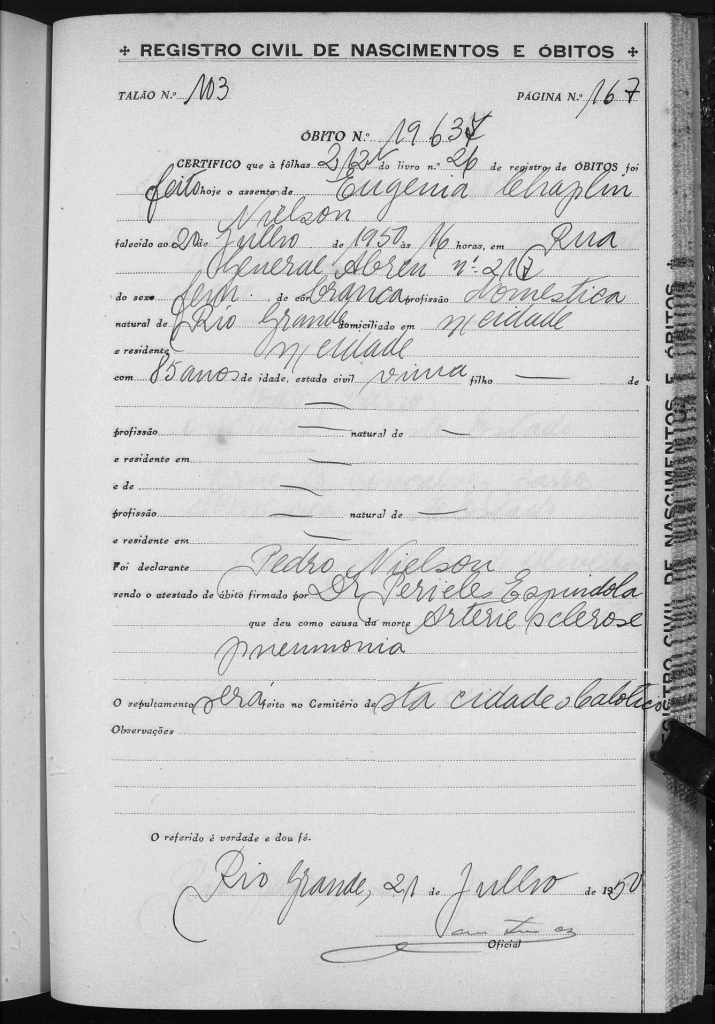 ✢ REGISTRO CIVIL DE NASCIMENTOS E ÓBITOS ✢
TALÃO N.º 103 PÁGINA N.º 167
ÓBITO N.º 19637
CERTIFICO que à fôlhas 212v do livro n.º 26 de registro de ÓBITOS foi
feito hoje o assento de Eugenia Chaplin
Nielson
falecido ao 20 de Julho de 1950 às 16 horas, em Rua
General Abreu nº 217
do sexo fem. de côr branca profissão domestica
natural de Rio Grande domiciliado em n/cidade
e residente n/cidade
com 85 anos de idade, estado civil viuva filho — de
—
profissão — natural de —
e residente em —
e de —
profissão — natural de —
e residente em —
Foi declarante Pedro Nielson
sendo o atestado de óbito firmado por Dr Pericles Espindola
que deu como causa da morte Arterie sclerose
pneumonia
O sepultamento será feito no Cemitério desta cidade Catolico
Observações
O referido é verdade e dou fé.
Rio Grande, 21 de Julho de 1950
Oficial
REGISTRO CIVIL DE NASCIMENTOS E ÓBITOS ✢